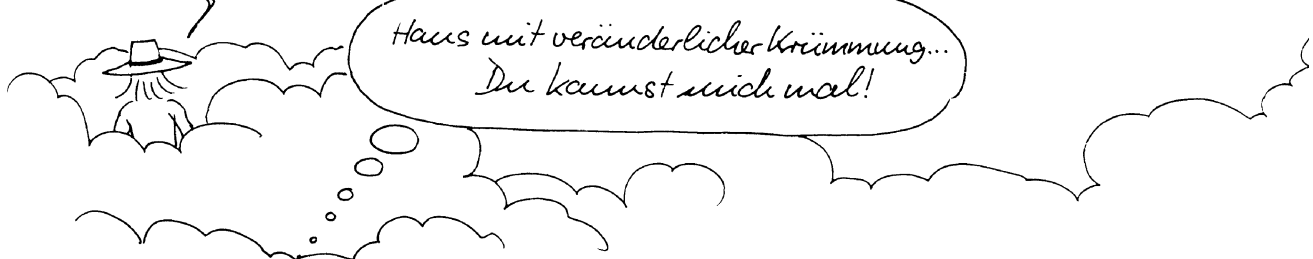 Haus mit veränderlicher Krümmung...
Du kannst mich mal!